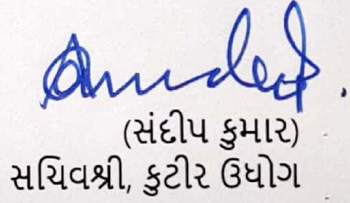 (સંદીપ કુમાર)
સચિવશ્રી, કુટીર ઉધોગ